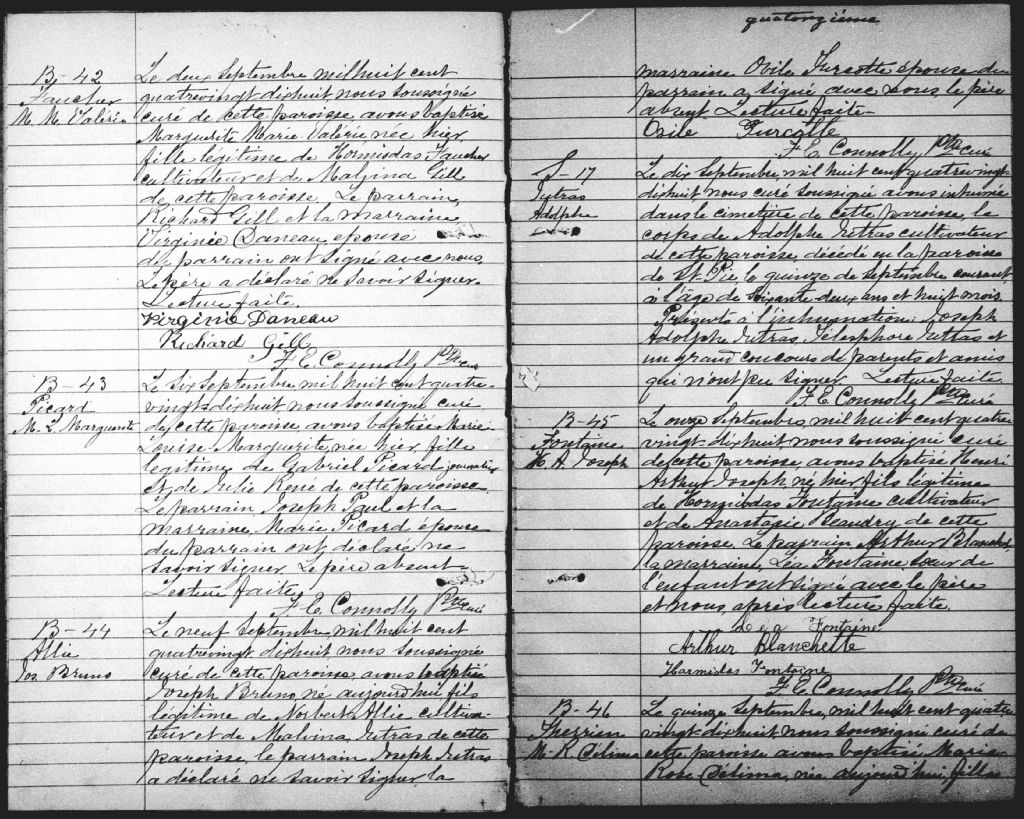 B - 42
Faucher
M. M. Valérie
Le deux Septembre mil huit cent
quatrevingt dixhuit nous soussigné
curé de cette paroisse avons baptisé
Marguerite Marie Valérie née hier
fille légitime de Hormisdas Faucher
cultivateur et de Malvina Gill
de cette paroisse. Le parrain
Richard Gill et la marraine
Virginie Daneau épouse
du parrain ont signé avec nous.
Le père a déclaré ne savoir signer.
Lecture faite.
Virginie Daneau
Richard Gill
F. E. Connolly Ptre curé
B - 43
Picard
M. L. Marguerite
Le six Septembre mil huit cent quatre-
vingt-dixhuit nous soussigné curé
de cette paroisse avons baptisé Marie
Louise Marguerite née hier fille
légitime de Gabriel Picard journalier
et de Julie René de cette paroisse.
Le parrain Joseph Paul et la
marraine Marie Picard épouse
du parrain ont déclaré ne
savoir signer. Le père absent-
Lecture faite.
F. E. Connolly Ptre curé
B - 44
Allie
Jos. Bruno
Le neuf Septembre mil huit cent
quatrevingt dixhuit nous soussigné
curé de cette paroisse avons baptisé
Joseph Bruno né aujourd'hui fils
légitime de Norbert Allie cultiva-
teur et de Malvina Jutras de cette
paroisse, le parrain Joseph Jutras
a déclaré ne savoir signer, la
quatorzième
marraine Ovila Turcotte épouse du
parrain a signé avec nous, le père
absent Lecture faite-
Turcotte
F. E. Connolly Ptre curé
S - 17
Jutras
Adolphe
Le dix Septembre mil huit cent quatrevingt-
dixhuit nous curé soussigné avons inhumé
dans le cimetière de cette paroisse, le
corps de Adolphe Jutras cultivateur
de cette paroisse, décédé en la paroisse
de St. Pie le quinze de septembre courant,
à l'âge de soixante deux ans et huit mois.
Présents à l'inhumation: Joseph
Adolphe Jutras, Télesphore Jutras et
un grand concours de parents et amis
qui n'ont pu signer. Lecture faite.
F. E. Connolly Ptre Curé
B - 45
Fontaine
H. A. Joseph
Le onze Septembre mil huit cent quatre
vingt-dixhuit nous soussigné curé
de cette paroisse avons baptisé Henri
Arthur Joseph né hier fils légitime
de Hormisdas Fontaine cultivateur
et de Anastasie Beaudry de cette
paroisse. Le parrain Arthur Blanchet
la marraine Léa Fontaine sœur de
l'enfant ont signé avec le père
et nous après lecture faite.
Léa Fontaine
Arthur Blanchette
Harmidas Fontaine
F. E. Connolly Ptre curé
B - 46
Therrien
M. R. Délima
Le quinze Septembre, mil huit cent quatre
vingt-dixhuit nous soussigné curé de
cette paroisse avons baptisé Marie
Rose Délima, née aujourd'hui, fille